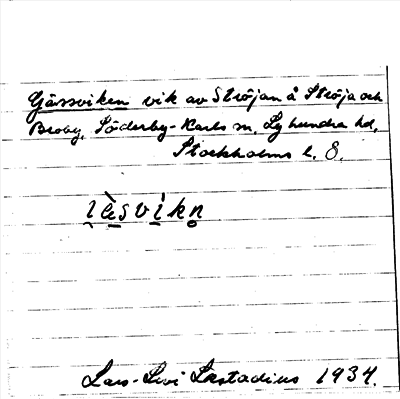 Gässviken vik av Ströjan å Ströja och
Broby, Söderby-Karls sn, Lyhundra hd,
Stockholms l. 8.
i̯è̱sv̱íkn̥
Lars-Levi Læstadius 1934.